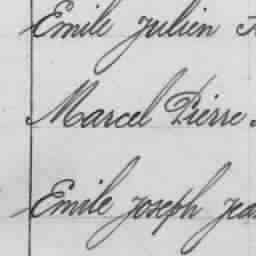 Emile Julien
Marcel Pierre
Emile Joseph Jean